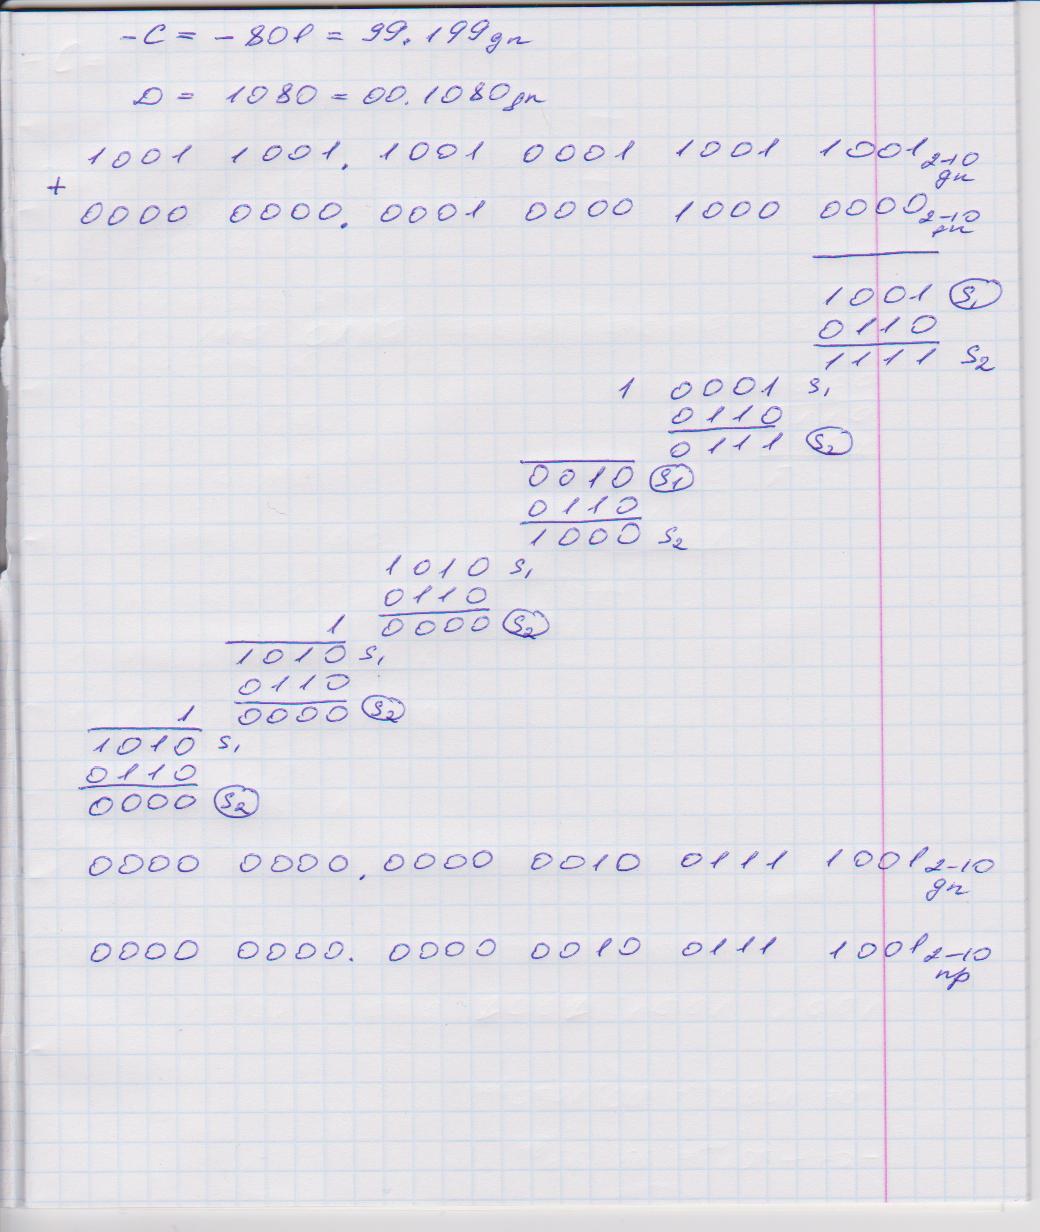 -C = - 801 = 99.199дп
D = 1080 = 00.1080дп
1001 1001. 1001 0001 1001 1001 2-10 дп
+
0000 0000. 0001 0000 1000 0000 2-10 дп
1001 S1
0110
1111 S2
1 0001 S1
0110
0111 S2
0010 S1
0110
1000 S2
1010 S1
0110
0000 S2
1
1010 S1
0110
0000 S2
1
1010 S1
0110
0000 S2
0000 0000. 0000 0010 0111 1001 2-10 дп
0000 0000. 0000 0010 0111 1001 2-10 пр